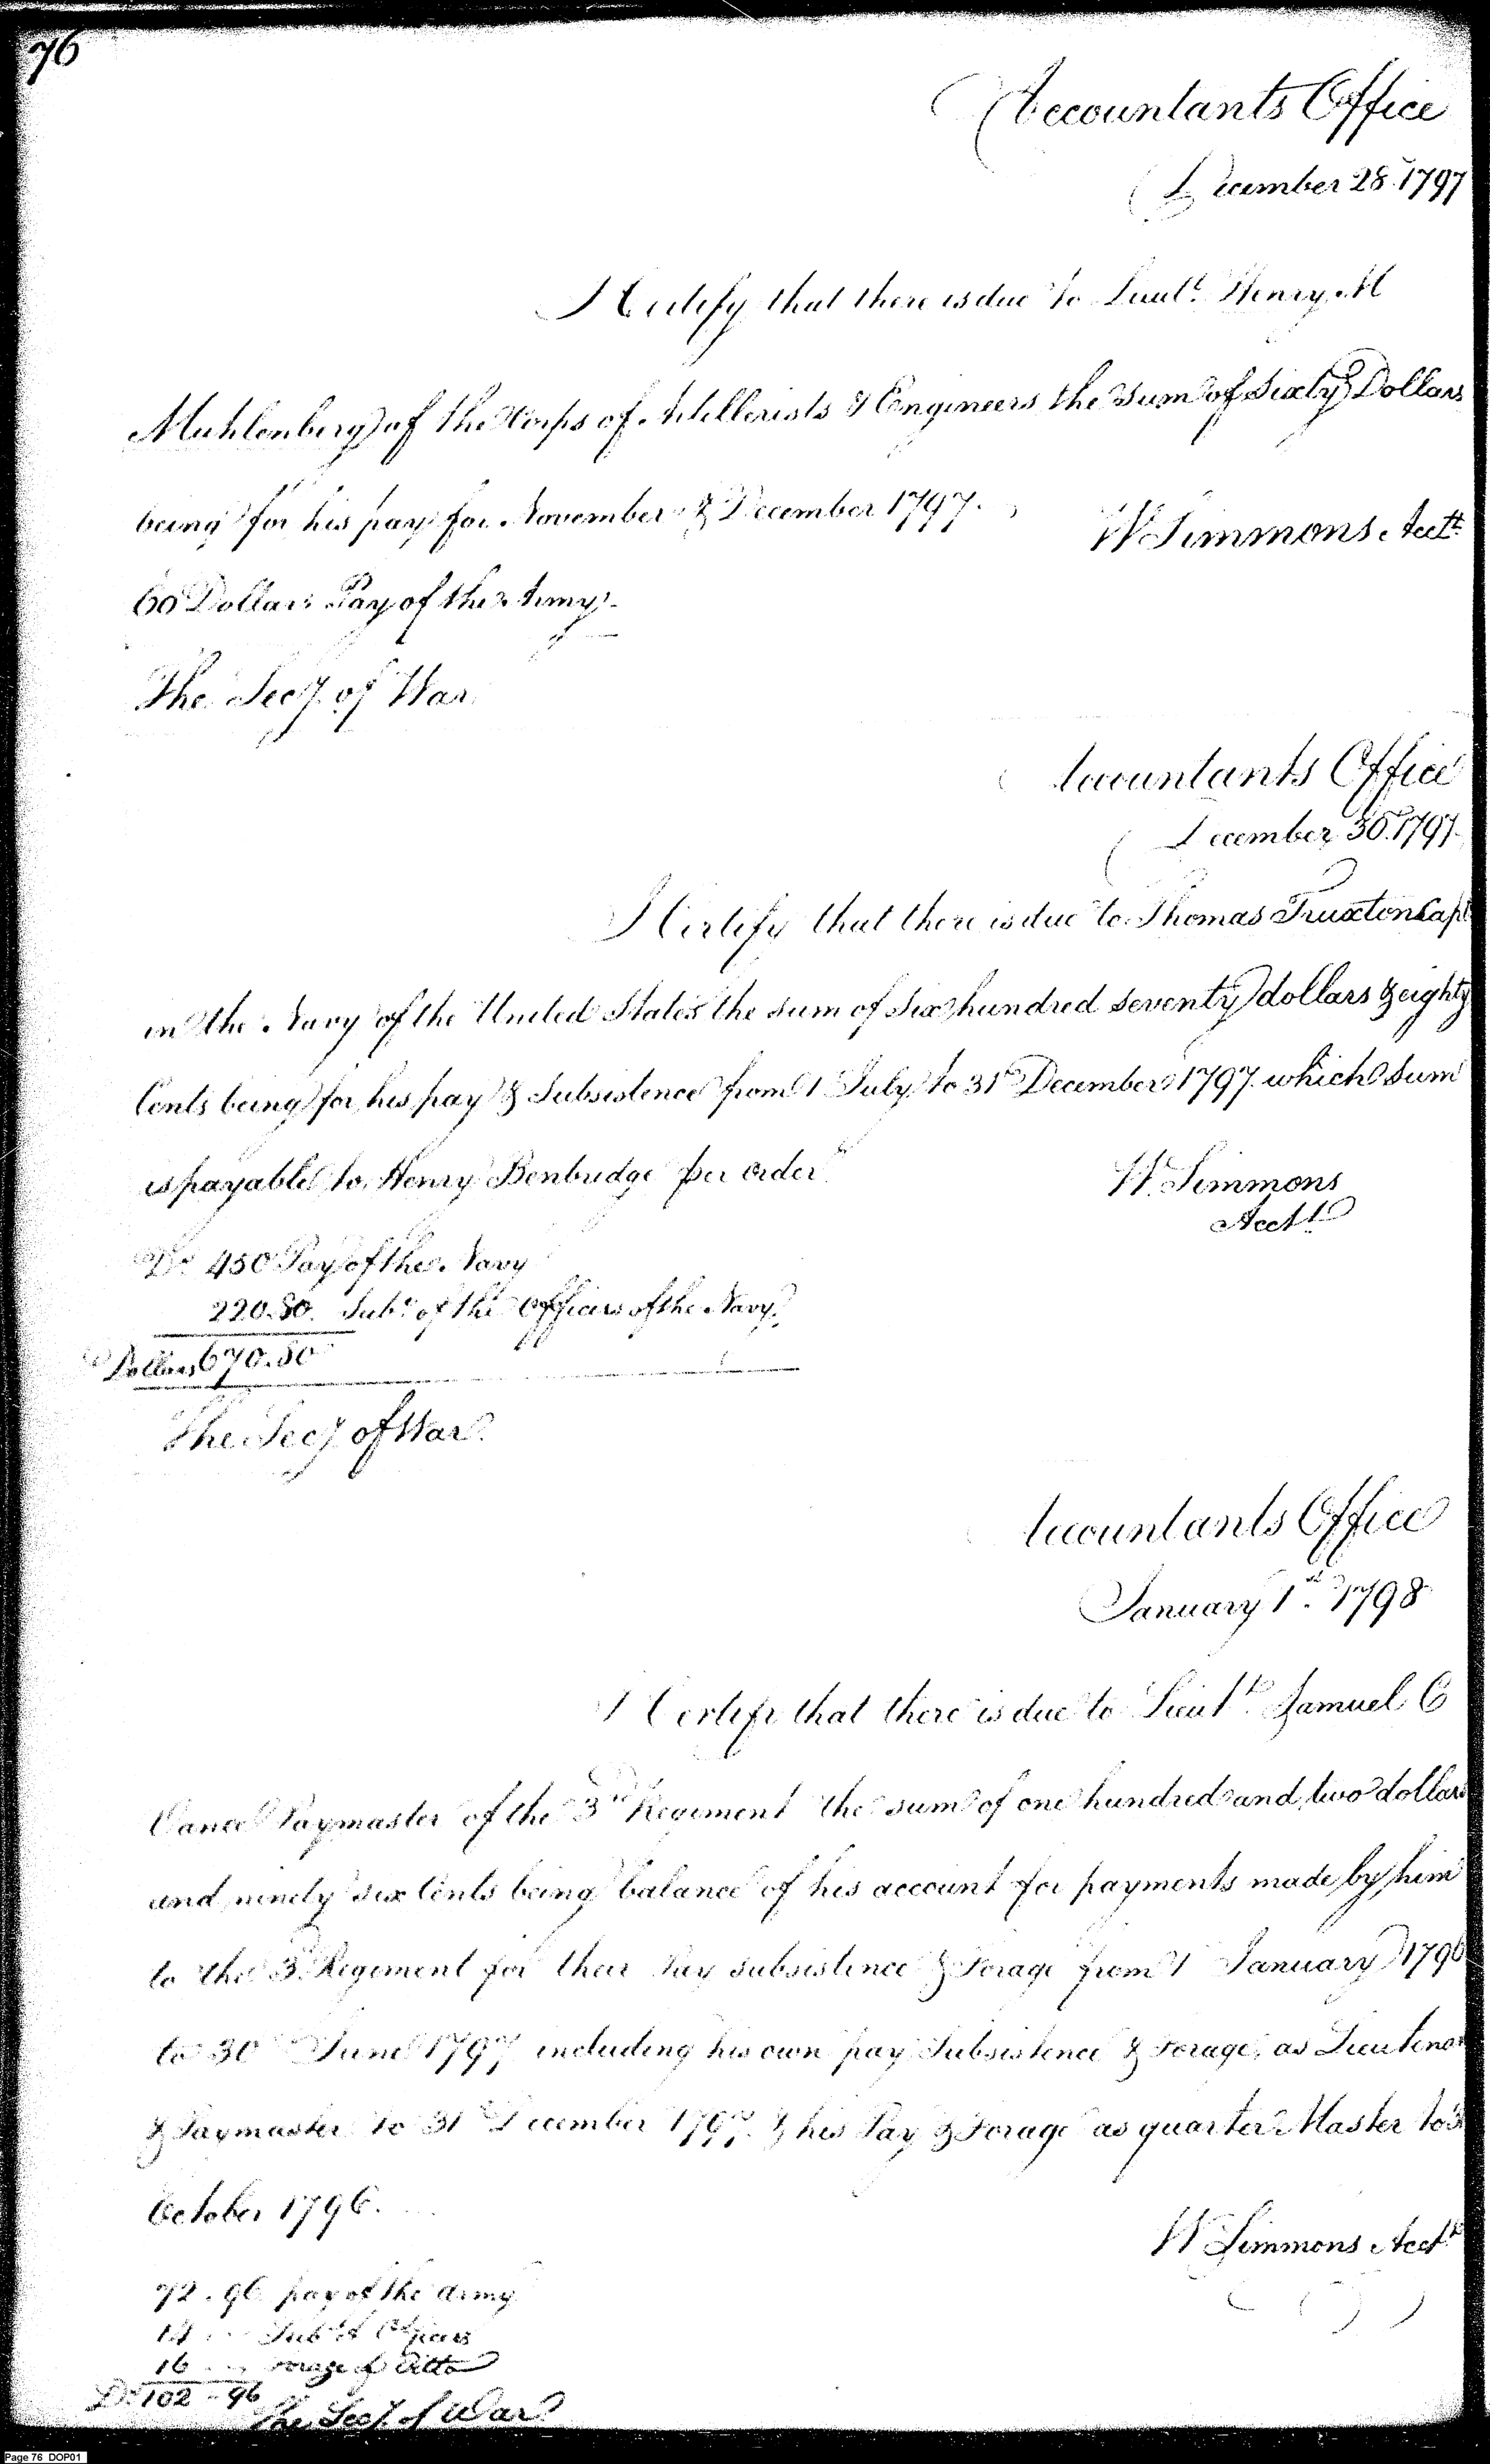 76
Accountants Office
December 28. 1797
I Certify that there is due to Lieut.t Henry M
Muhlenberg of the Corps of Artillerists & Engineers the sum of Sixty Dollars
being for his pay for November & December 1797.
W Simmons Acct.t
60 Dollars Pay of the Army
The Secy. of War
Accountants Office
December 30. 1797
I Certify that there is due to Thomas Truxton Capt
in the Navy of the United States the sum of six hundred seventy dollars & eighty
Cents being for his pay & Subsistence from 1 July to 31st December 1797. which sum
is payable to Henry Benbridge per order
W. Simmons
Acctt
Ds. 450 Pay of the Navy
220.80. Subs. of the Officers of the Navy.
Dollars 670.80
The Secy of War.
Accountants Office
January 1st. 1798
I Certify that there is due to Lieutt. Samuel C
Vance Paymaster of the 3rd Regiment the sum of one hundred and two dollars
and ninety six Cents being balance of his account for payments made by him
to the 3d Regiment for their Pay subsistence & Forage from 1 January 1796
to 30 June 1797 including his own pay Subsistence & Forage, as Lieutenan
& Paymaster to 31st December 1797. & his Pay & Forage as quarter Master to 3
October 1796.
W Simmons Acctt
72.96 pay of the army
14 Subs of Officers
16 Forage of Ditto
Ds. 102-96
The Secy. of War